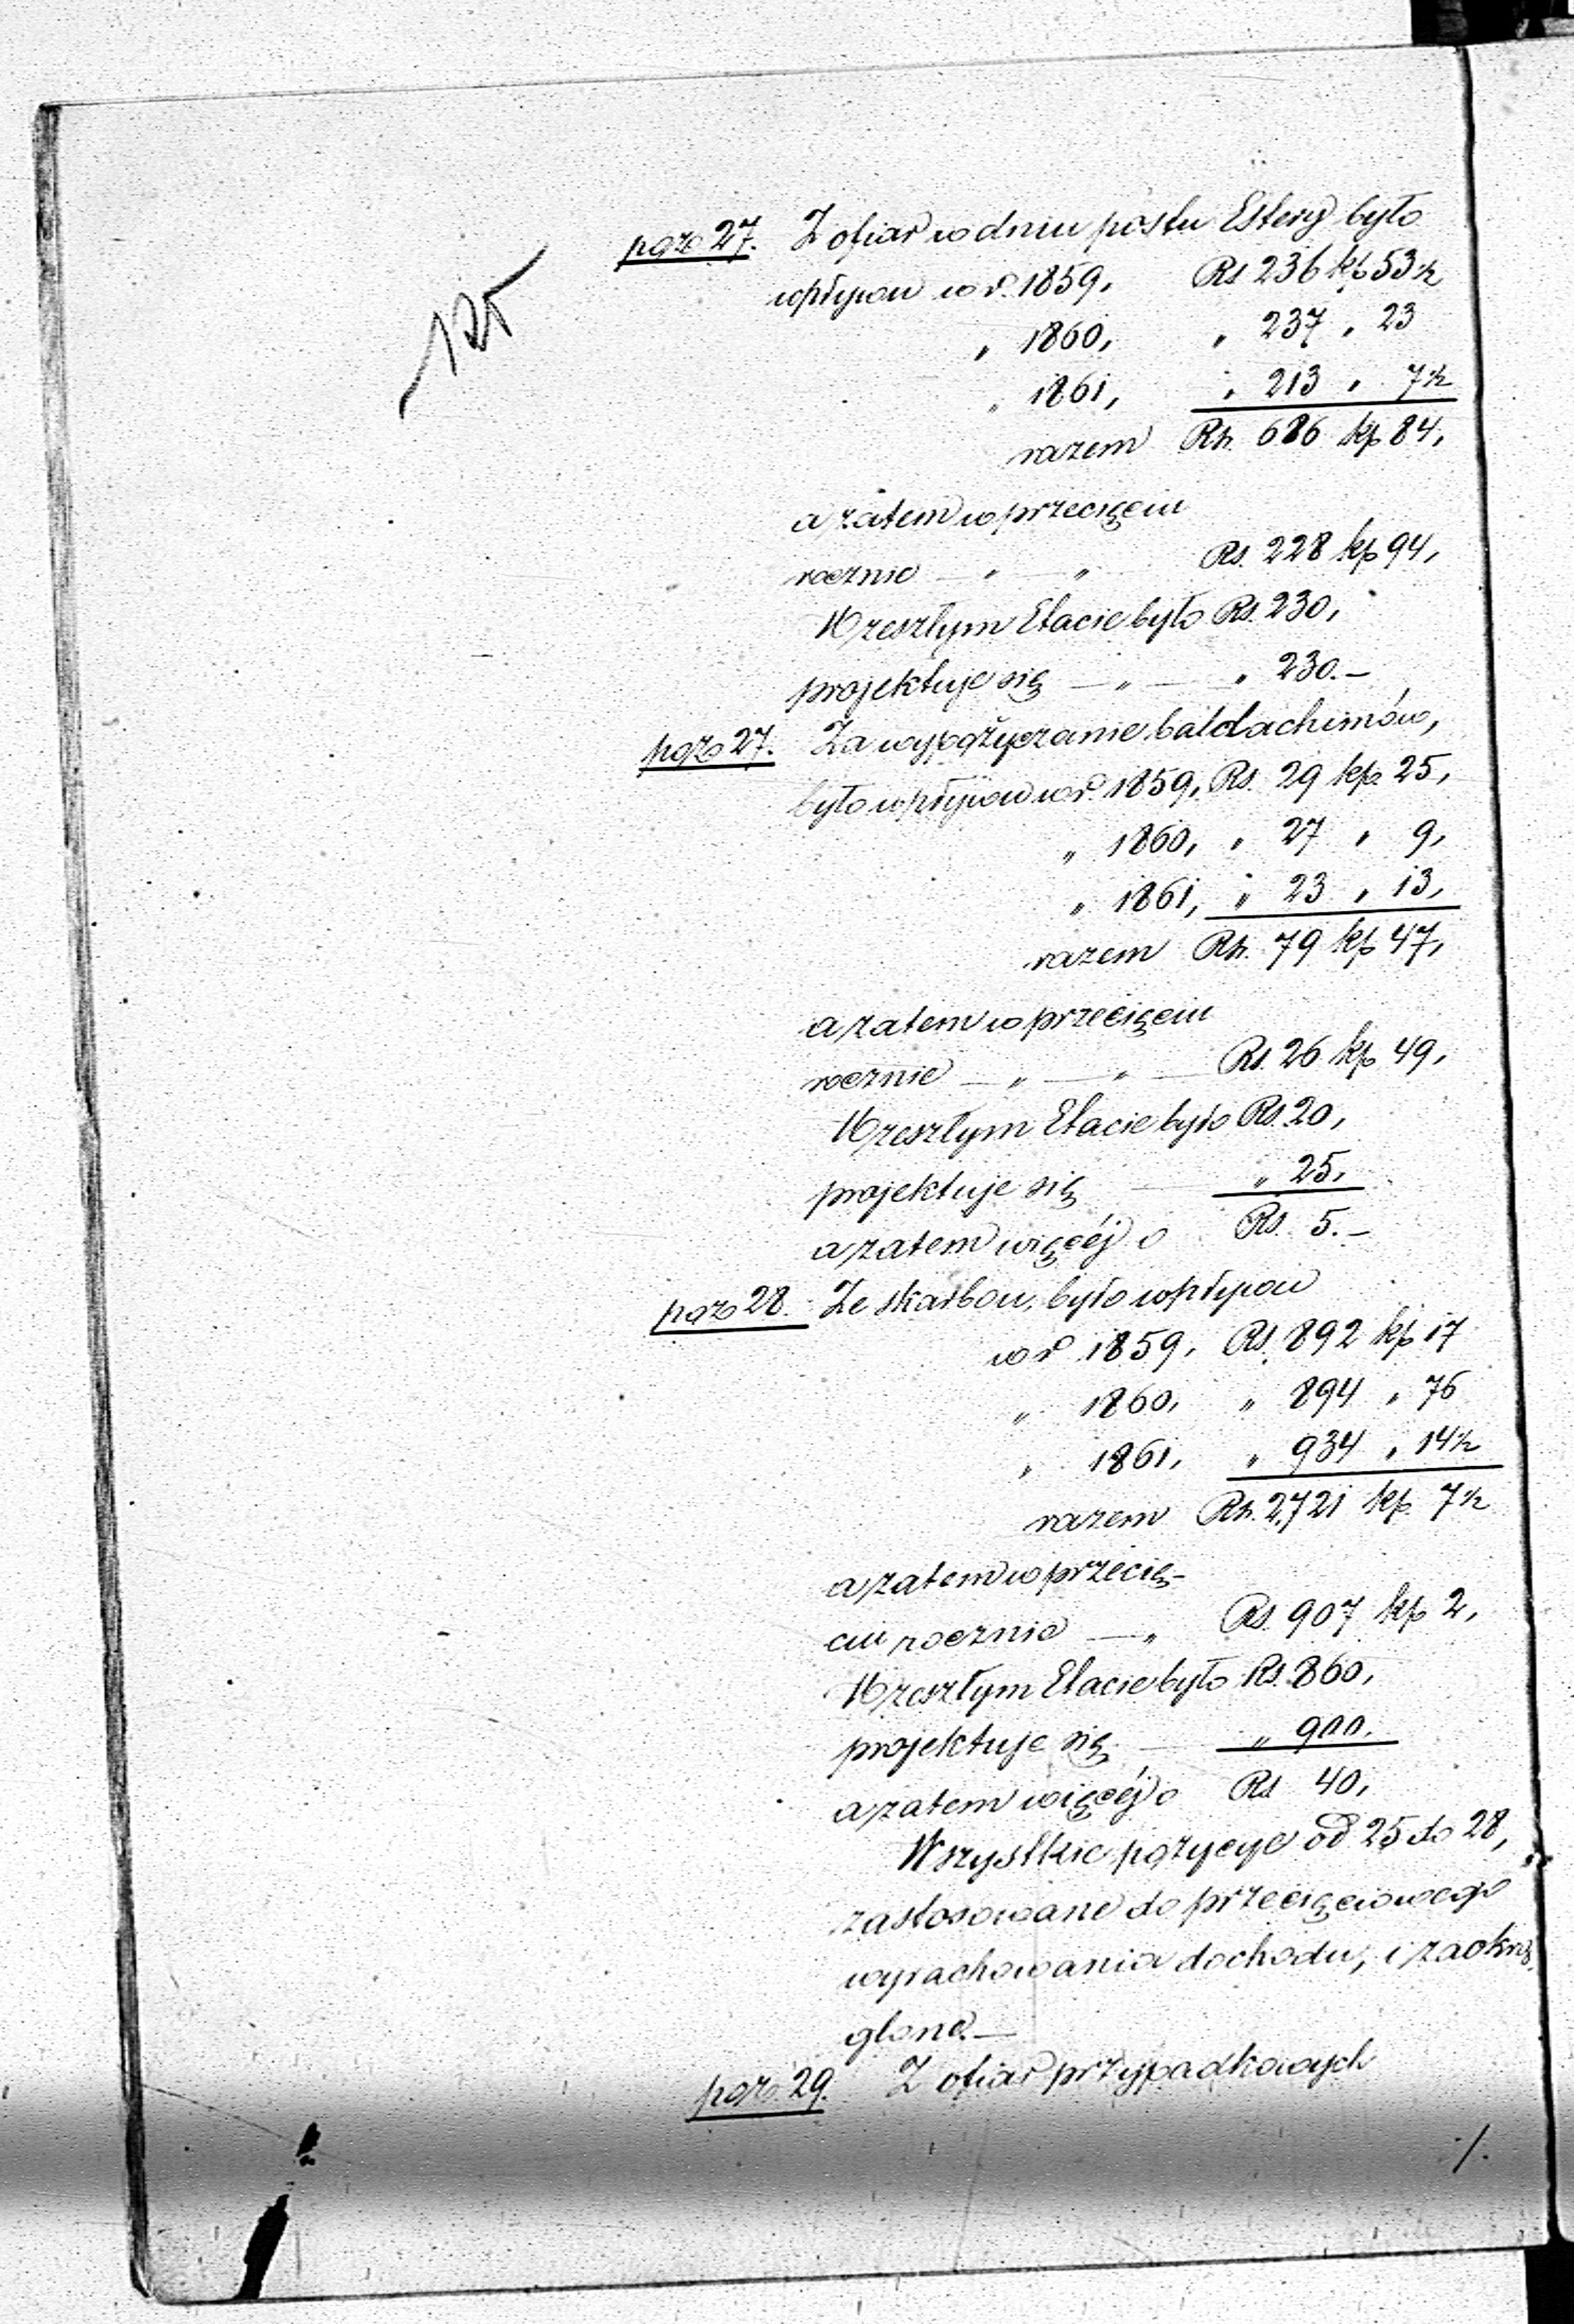 125
poz 27. Z ofiar w dniu postu Estery było
wpływu w r. 1859, Rs 236 kp 53½
" 1860, " 237 " 23
" 1861, " 213 " 7½
razem Rs. 686 kp 84,
a zatem w przecięciu
rocznie — " — " Rs. 228 kp 94,
W zeszłym Etacie było Rs. 230,
projektuje się — " — " 230.—
poz 27. Za wypożyczanie baldachimów,
było wpływu w r. 1859, Rs. 29 kp. 25,
" 1860, " 27 " 9,
" 1861, " 23 " 13,
razem Rs. 79 kp 47,
a zatem w przecięciu
rocznie — " — " — Rs. 26 kp 49,
W zeszłym Etacie było Rs. 20,
projektuje się — " 25,
a zatem więcéj o Rs. 5.—
poz 28. Ze skarbon, było wpływu
w r. 1859, Rs. 892 kp 17
" 1860, " 894 " 76
" 1861, " 934 " 14½
razem Rs. 2,721 kp. 7½
a zatem w przecię-
ciu rocznie — " Rs. 907 kp 2,
W zeszłym Etacie było Rs. 860,
projektuje się — " 900.
a zatem więcéj o Rs 40,
Wszystkie pozycye od 25 do 28,
zastosowane do przecięciowego
wyrachowania dochodu, i zaokrą
glone.—
poz. 29. Z ofiar przypadkowych
./.